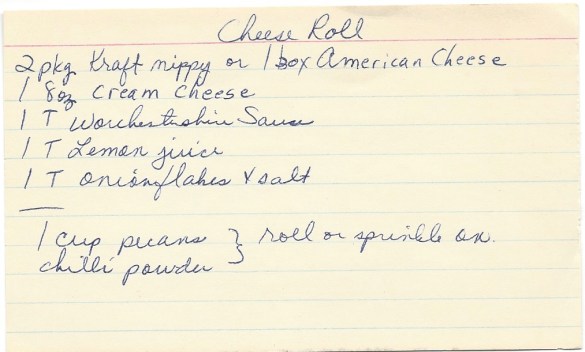 Cheese Roll
2 pkg Kraft nippy or 1 box American Cheese
1 8oz Cream Cheese
1 T Worchestushire Sauce
1 T Lemon juice
1 T onionflakes & salt
1 cup pecans } roll or sprinkle on.
chilli powder